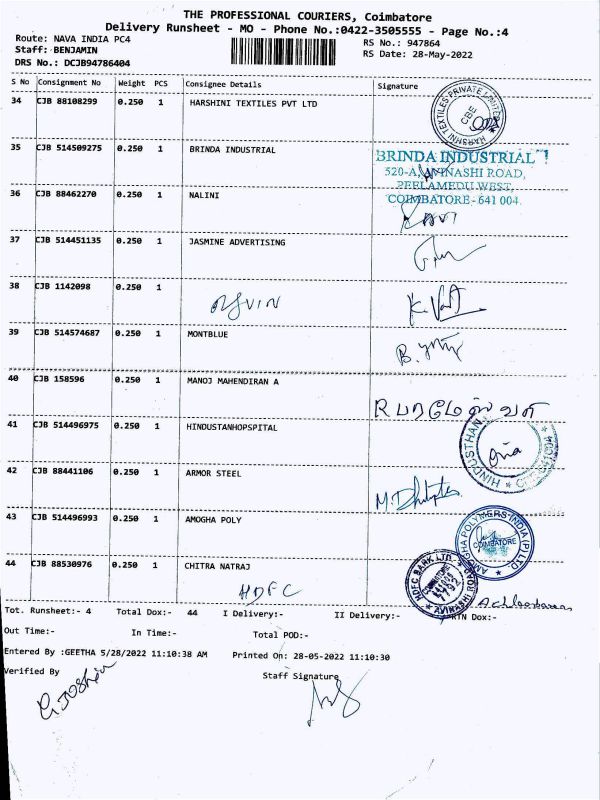 THE PROFESSIONAL COURIERS, Coimbatore
Delivery Runsheet - MO - Phone No.:0422-3505555 - Page No.:4
Route: NAVA INDIA PC4
RS No.: 947864
Staff: BENJAMIN
RS Date: 28-May-2022
DRS No.: DCJB94786404
S No Consignment No Weight PCS Consignee Details Signature
34 CJB 88108299 0.250 1 HARSHINI TEXTILES PVT LTD
HARSHNI TEXTILES PRIVATE LIMITED CBE
35 CJB 514509275 0.250 1 BRINDA INDUSTRIAL
BRINDA INDUSTRIAL
520-A, AVINASHI ROAD,
PEELAMEDU WEST,
COIMBATORE - 641 004.
36 CJB 88462270 0.250 1 NALINI
RAVI
37 CJB 514451135 0.250 1 JASMINE ADVERTISING
38 CJB 1142098 0.250 1
39 CJB 514574687 0.250 1 MONTBLUE
40 CJB 158596 0.250 1 MANOJ MAHENDIRAN A
R பரமேஸ்வரி
41 CJB 514496975 0.250 1 HINDUSTANHOPSPITAL
HINDUSTHAN
42 CJB 88441106 0.250 1 ARMOR STEEL
43 CJB 514496993 0.250 1 AMOGHA POLY
AMOGHA POLYMERS INDIA (P) LTD COIMBATORE
44 CJB 88530976 0.250 1 CHITRA NATRAJ
HDFC
HDFC BANK LTD. AVINASHI ROAD
Tot. Runsheet:- 4 Total Dox:- 44 I Delivery:- II Delivery:- RTN Dox:-
Out Time:- In Time:- Total POD:-
Entered By :GEETHA 5/28/2022 11:10:38 AM Printed On: 28-05-2022 11:10:30
Verified By Staff Signature